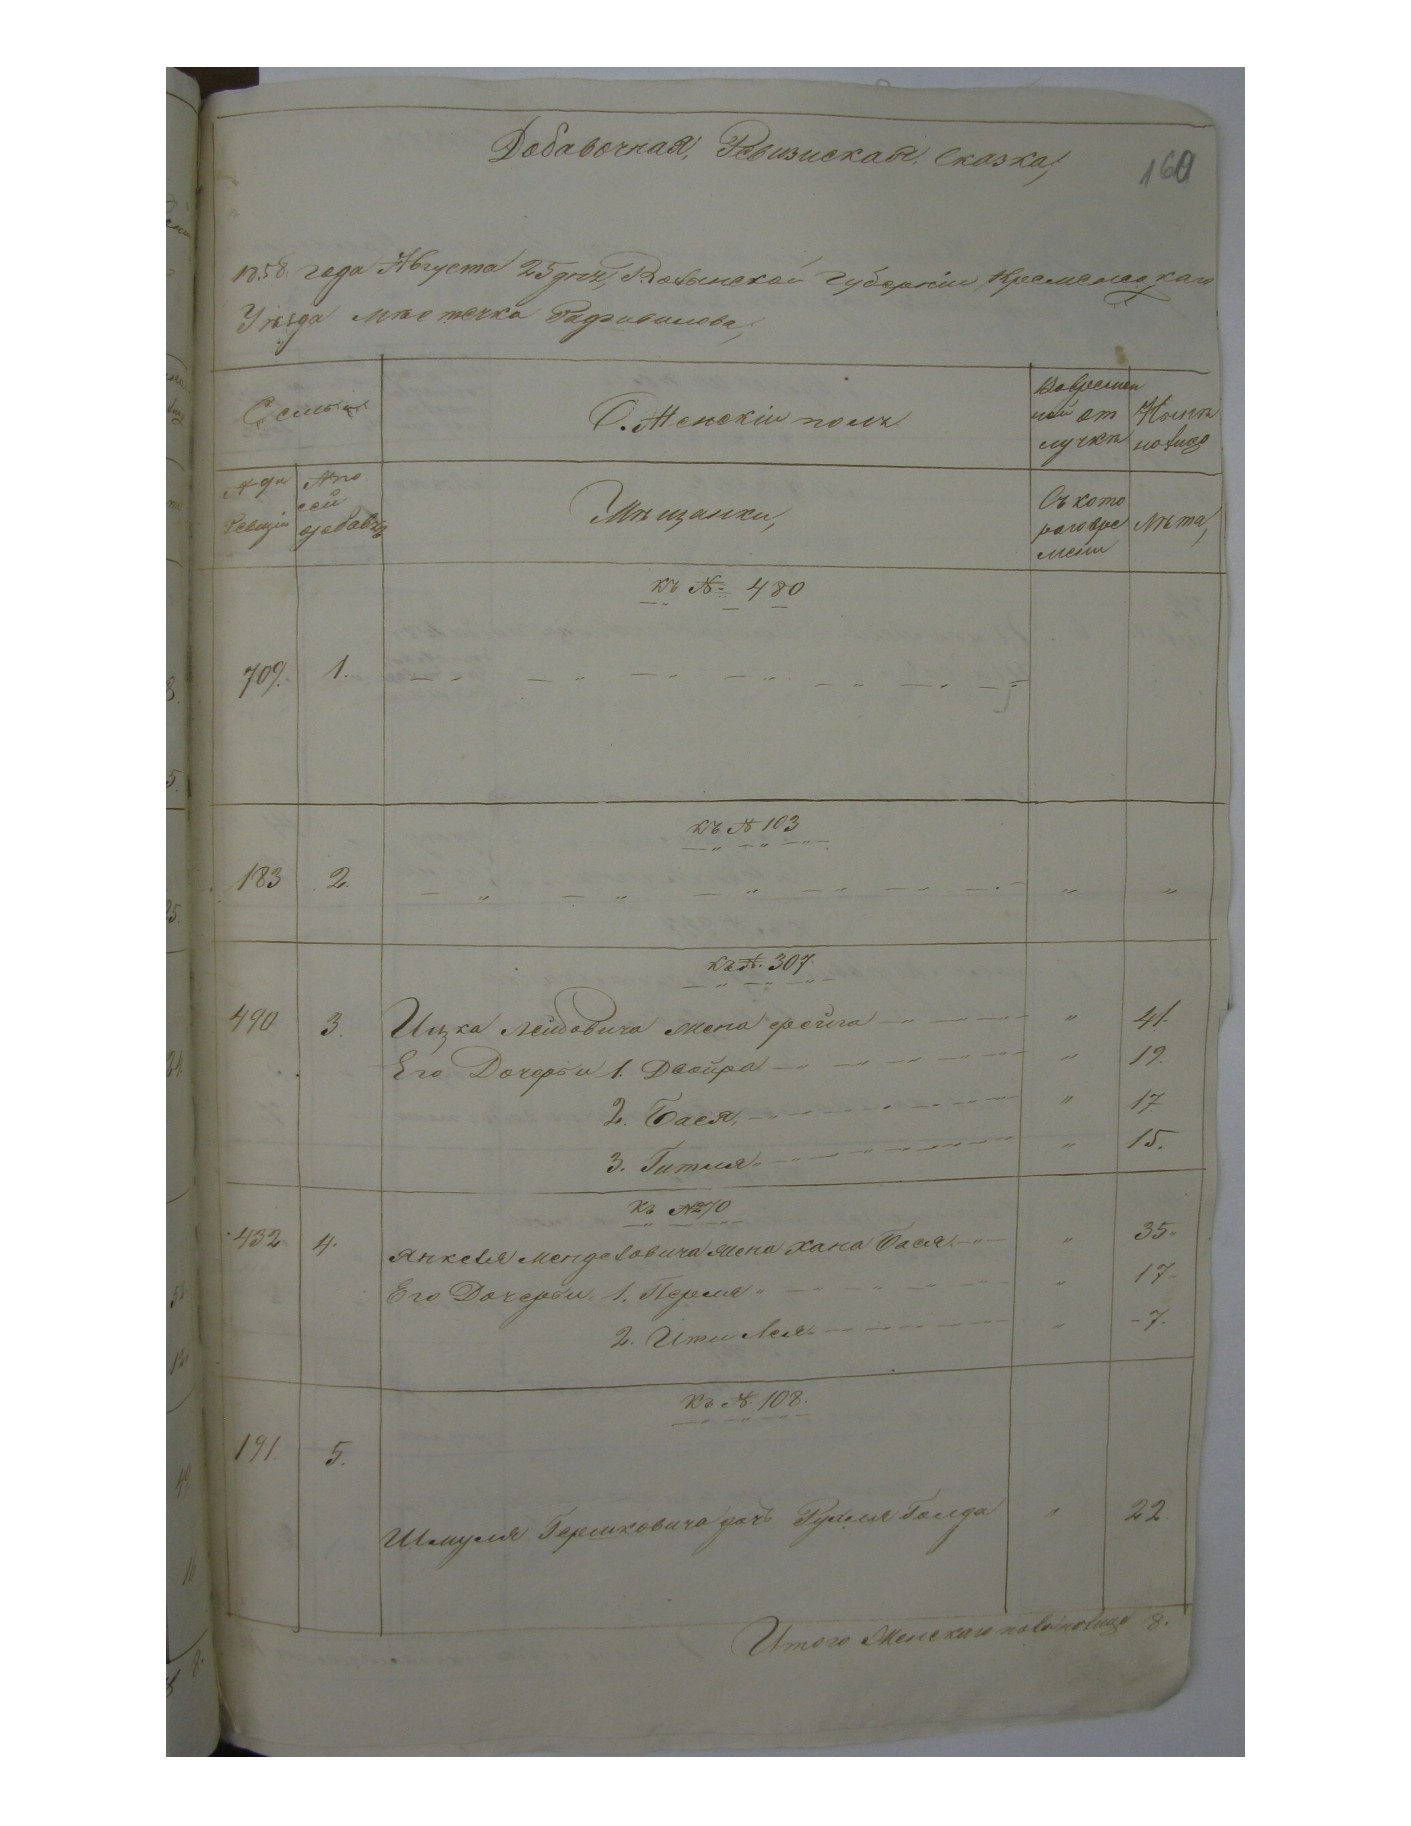 Добавочная Ревизская Сказка,
160
1858 года Августа 25 дня, Волынской Губерніи Кременецкаго
Уѣзда мѣстечка Радзивилова,
Семьи
Женскій полъ
Во времен
ной от
лучкѣ
Нынѣ
на лицо
№ по
сей
добавч
Мѣщанки,
Съ кото
раго вре
мени
Лѣта,
къ № 480
709. 1.
къ № 103
183 2.
къ № 307.
490 3. Ицка Лейбовича жена Фейга " 41.
Его Дочери 1. Двойра " 19.
2. Бася " 17
3. Гитля " 15.
къ № 70
432 4. Янкеля Менделовича жена Хана Бася " 35.
Его Дочери 1. Перля " 17.
2. Ити Лея " 7.
къ № 108.
191. 5.
Шмуля Гершковича дочь Рухля Голда " 22
Итого Женскаго пола на лицо 8.